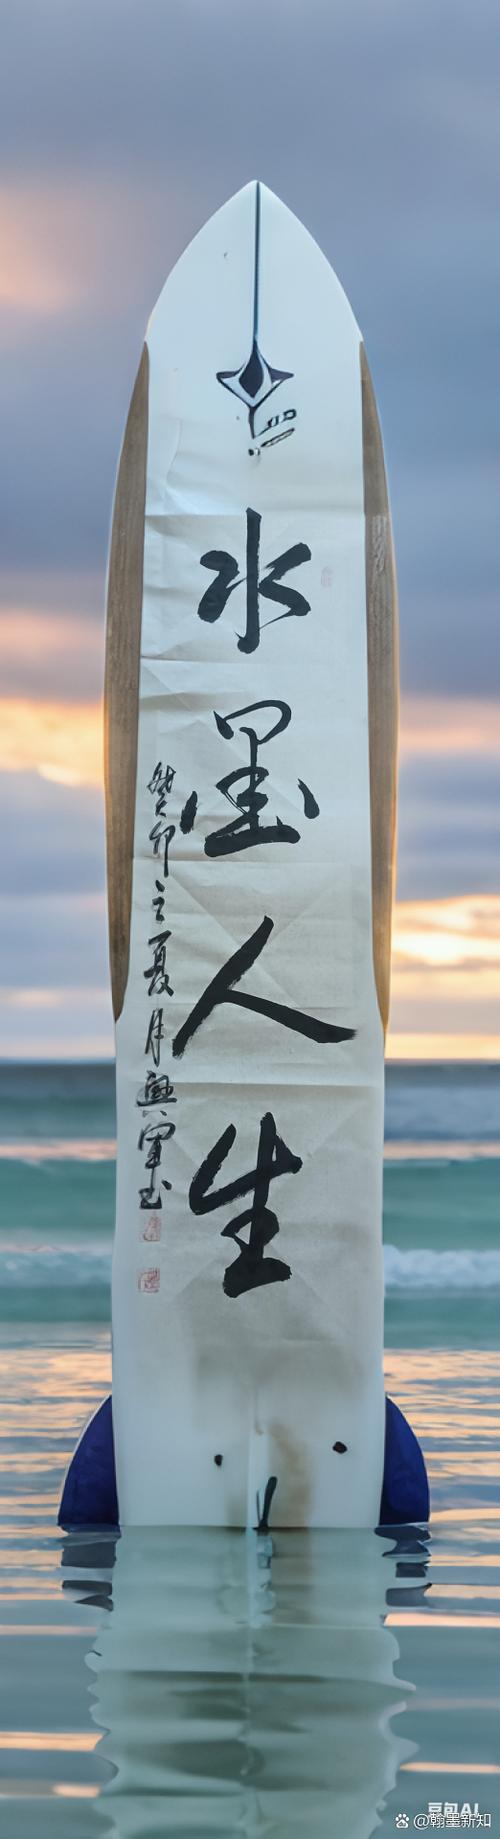 水墨人生
癸卯之夏月兴军书
豆包AI
@翰墨新知